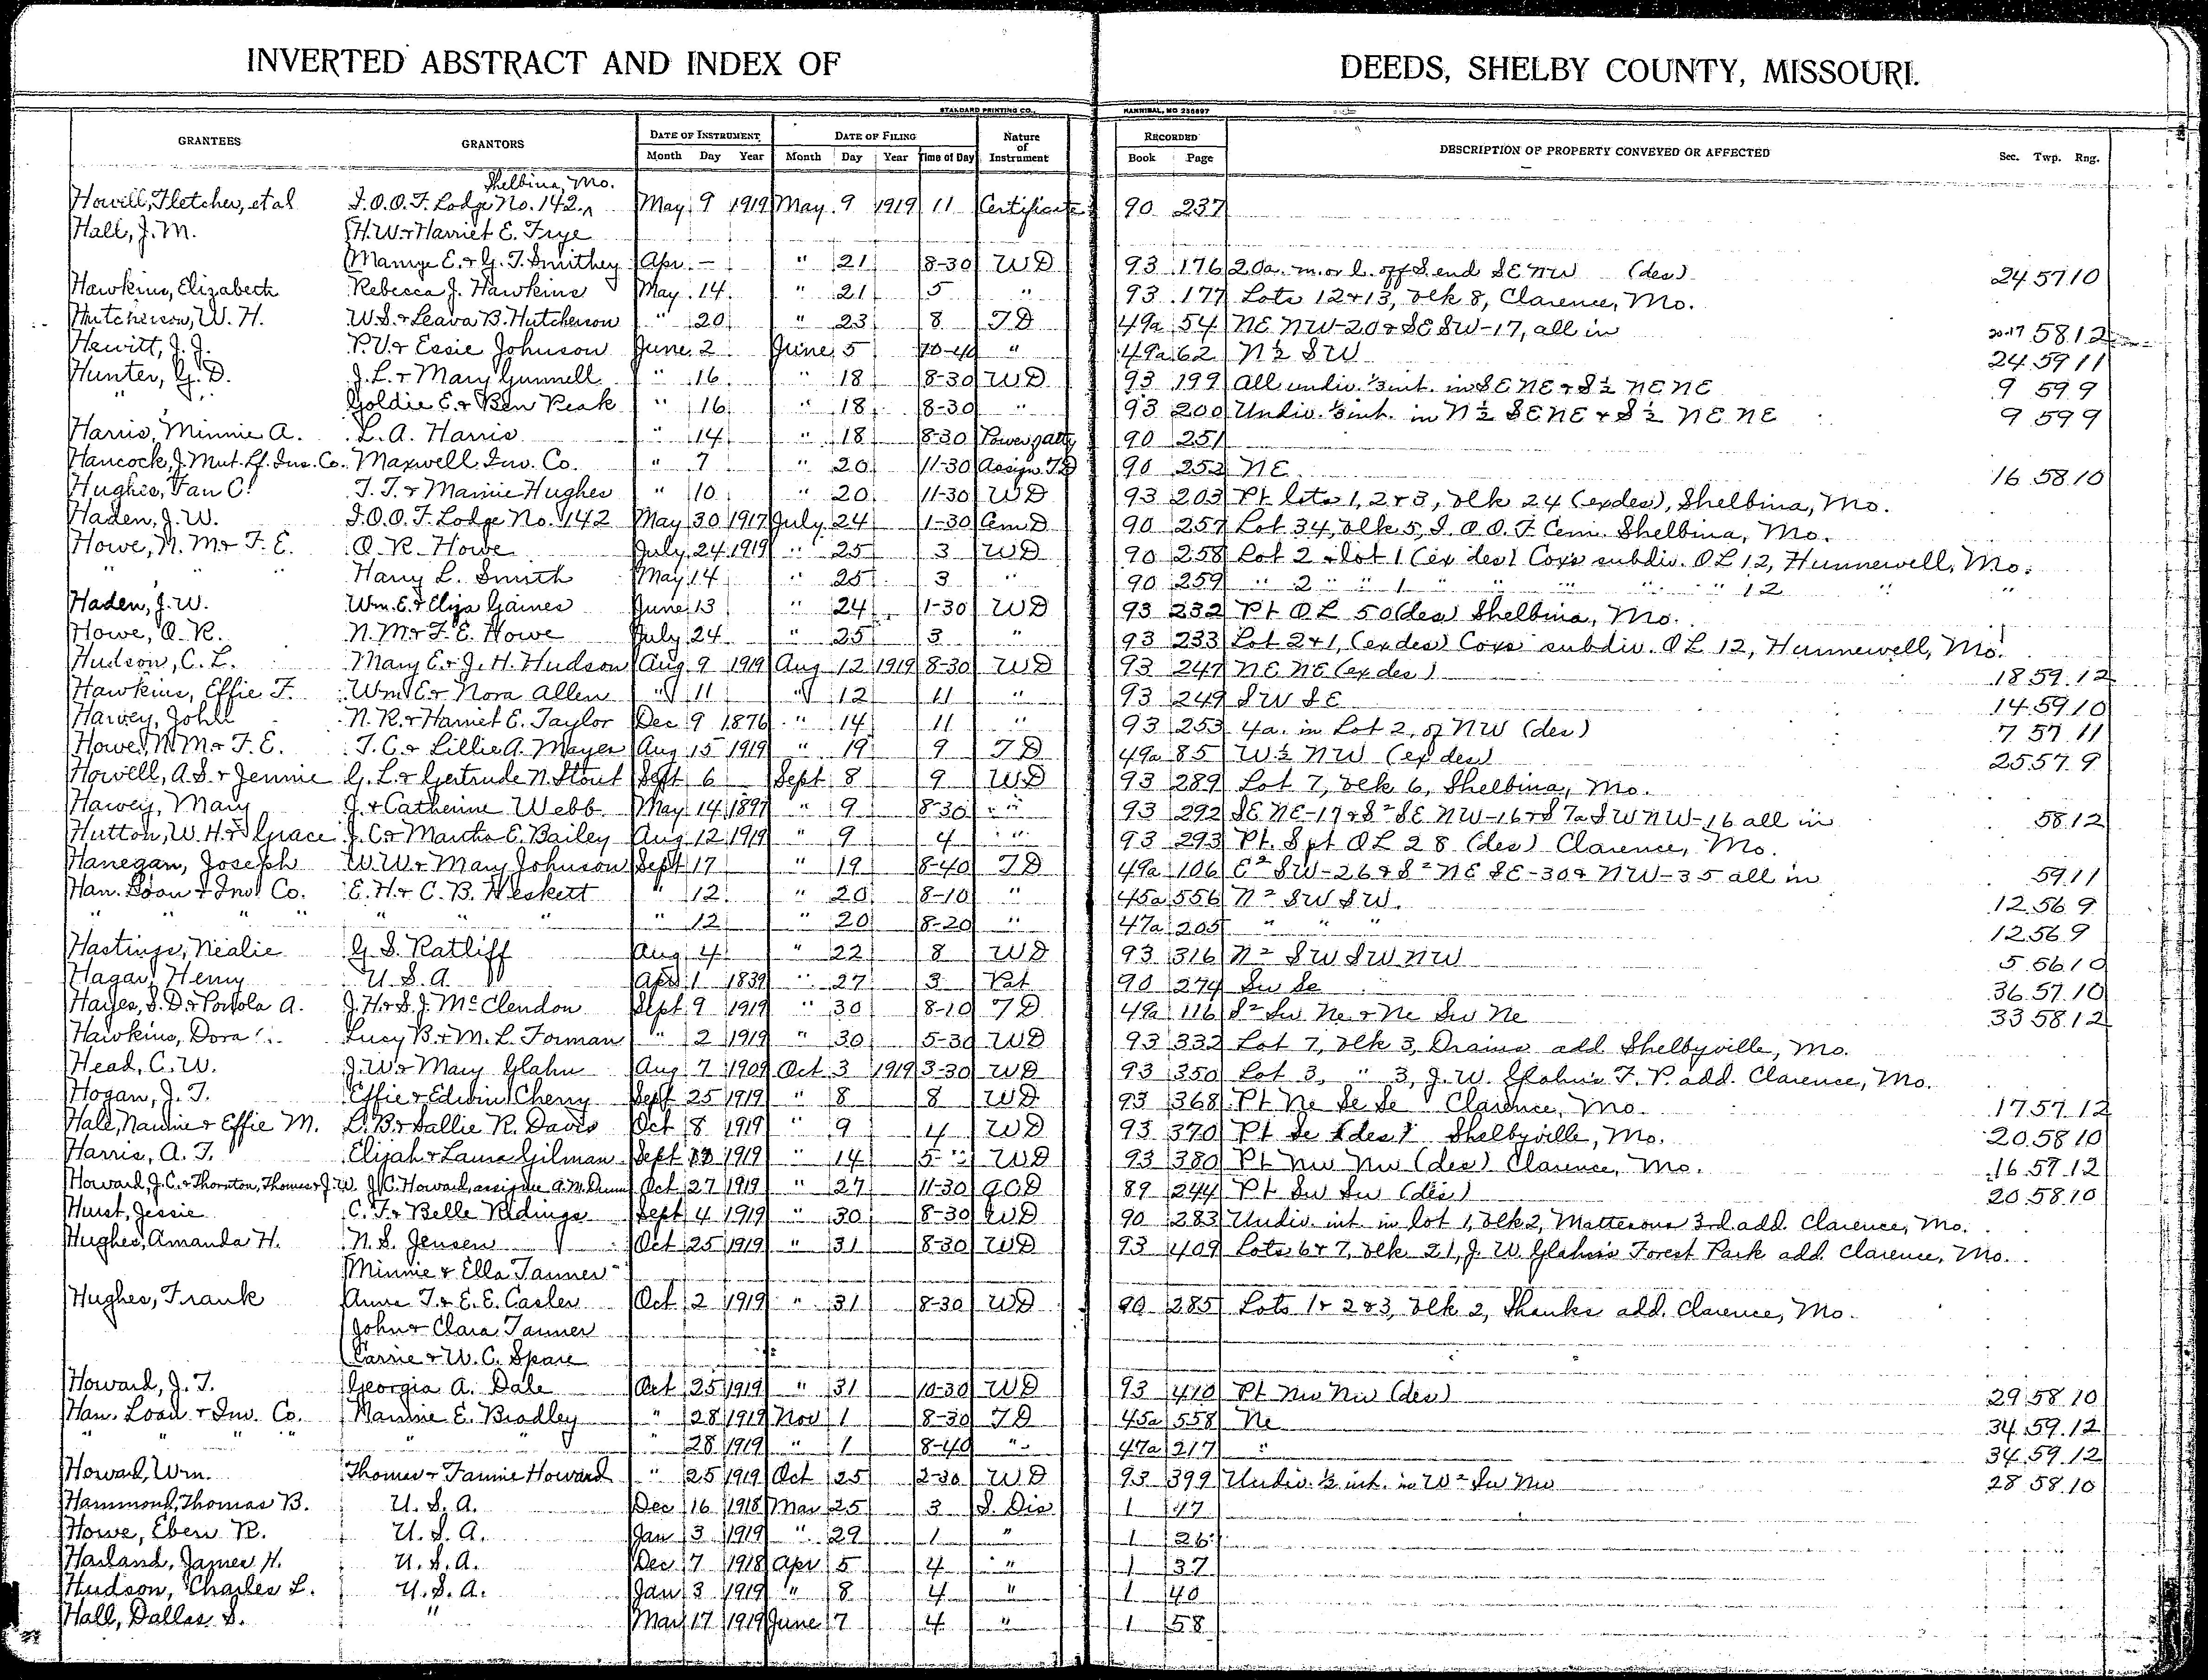 INVERTED ABSTRACT AND INDEX OF DEEDS, SHELBY COUNTY, MISSOURI.
STANDARD PRINTING CO., HANNIBAL, MO 236897
GRANTEES GRANTORS DATE OF INSTRUMENT DATE OF FILING Nature of Instrument RECORDED DESCRIPTION OF PROPERTY CONVEYED OR AFFECTED Sec. Twp. Rng.
Month Day Year Month Day Year Time of Day Book Page
Shelbina, Mo.
Howell, Fletcher, et al I.O.O.F. Lodge No. 142 May 9 1919 May 9 1919 11 Certificate 90 237
Hall, J. M. H. W. & Harriet E. Frye
Mamye E. & G. T. Smithey Apr. – " 21 8-30 WD 93 176 20a. m. or l. off S. end SE NW (des) 24 57 10
Hawkins, Elizabeth Rebecca J. Hawkins May 14 " 21 5 " 93 177 Lots 12 & 13, blk 8, Clarence, Mo.
Hutcherson, W. H. W. S. & Leava B. Hutcherson " 20 " 23 8 TD 49a 54 NE NW-20 & SE SW-17, all in 20-17 58 12
Hewitt, J. J. P. V. & Essie Johnson June 2 June 5 10-40 " 49a 62 N½ SW 24 59 11
Hunter, G. D. J. L. & Mary Gunnell " 16 " 18 8-30 WD 93 199 All undiv. ⅓ int. in SE NE & S½ NE NE 9 59 9
" " Goldie E. & Ben Peak " 16 " 18 8-30 " 93 200 Undiv. ⅓ int. in N½ SE NE & S½ NE NE 9 59 9
Harris, Minnie A. L. A. Harris " 14 " 18 8-30 Power of atty 90 251
Hancock, J. Mut. Lf. Ins. Co. Maxwell Inv. Co. " 7 " 20 11-30 Assign. TD 90 252 NE 16 58 10
Hughes, Fan C. T. T. & Mamie Hughes " 10 " 20 11-30 WD 93 203 Pt lots 1, 2 & 3, blk 24 (ex des), Shelbina, Mo.
Haden, J. W. I.O.O.F. Lodge No. 142 May 30 1917 July 24 1-30 Cem D 90 257 Lot 34, blk 5, I. O. O. F. Cem. Shelbina, Mo.
Howe, N. M. & F. E. O. R. Howe July 24 1919 " 25 3 WD 90 258 Lot 2 & lot 1 (ex des) Cox's subdiv. OL 12, Hunnewell, Mo.
" " " Harry L. Smith May 14 " 25 3 " 90 259 " 2 " " 1 " " " " " 12 " "
Haden, J. W. Wm. E. & Eliza Gaines June 13 " 24 1-30 WD 93 232 Pt OL 50 (des) Shelbina, Mo.
Howe, O. R. N. M. & F. E. Howe July 24 " 25 3 " 93 233 Lot 2 & 1, (ex des) Cox's subdiv. OL 12, Hunnewell, Mo.
Hudson, C. L. Mary E. & J. H. Hudson Aug 9 1919 Aug 12 1919 8-30 WD 93 247 NE NE (ex des) 18 59 12
Hawkins, Effie F. Wm E. & Nora Allen " 11 " 12 11 " 93 249 SW SE 14 59 10
Harvey, John N. R. & Harriet E. Taylor Dec 9 1876 " 14 11 " 93 253 4a. in Lot 2, of NW (des) 7 57 11
Howe, N. M. & F. E. T. C. & Lillie A. Mayes Aug 15 1919 " 19 9 TD 49a 85 W½ NW (ex des) 25 57 9
Howell, A. S. & Jennie G. L. & Gertrude N. Stout Sept 6 Sept 8 9 WD 93 289 Lot 7, blk 6, Shelbina, Mo.
Harvey, Mary J. & Catherine Webb May 14 1897 " 9 8-30 " 93 292 SE NE-17 & S² SE NW-16 & S 7a SW NW-16 all in 58 12
Hutton, W. H. & Grace J. C. & Martha E. Bailey Aug 12 1919 " 9 4 " 93 293 Pt. S pt OL 28 (des) Clarence, Mo.
Hanegan, Joseph W. W. & Mary Johnson Sept 17 " 19 8-40 TD 49a 106 E² SW-26 & S² NE SE-30 & NW-35 all in 59 11
Han. Loan & Inv. Co. E. H. & C. B. Heskett " 12 " 20 8-10 " 45a 556 N² SW SW. 12 56 9
" " " " " " " " 12 " 20 8-20 " 47a 205 " " " 12 56 9
Hastings, Nealie G. S. Ratliff Aug 4 " 22 8 WD 93 316 N² SW SW NW 5 56 10
Hagar, Henry U. S. A. Apr 1 1839 " 27 3 Pat 90 274 Sw Se 36 57 10
Hayes, S. D. & Portola A. J. H. & S. J. McClendon Sept 9 1919 " 30 8-10 TD 49a 116 S² Sw Ne & Ne Sw Ne 33 58 12
Hawkins, Dora Lucy B. & M. L. Forman " 2 1919 " 30 5-30 WD 93 332 Lot 7, blk 3, Drains add Shelbyville, Mo.
Head, C. W. J. W. & Mary Glahn Aug 7 1909 Oct 3 1919 3-30 WD 93 350 Lot 3, " 3, J. W. Glahn's F. P. add. Clarence, Mo.
Hogan, J. T. Effie & Edwin Cherry Sept 25 1919 " 8 8 WD 93 368 Pt Ne Se Se Clarence, Mo. 17 57 12
Hall, Nannie & Effie M. L. B. & Sallie R. Davis Oct 8 1919 " 9 4 WD 93 370 Pt Se (des) Shelbyville, Mo. 20 58 10
Harris, A. F. Elijah & Laura Gilman Sept 1919 " 14 5 WD 93 380 Pt Nw Nw (des) Clarence, Mo. 16 57 12
Howard, J. C. & Thornton, Thomas & J. W. J. C. Howard, assignee A. M. Dunn Oct 27 1919 " 27 11-30 QCD 89 244 Pt Sw Sw (des) 20 58 10
Hurst, Jessie C. F. & Belle Ridings Sept 4 1919 " 30 8-30 WD 90 283 Undiv. int. in lot 1, blk 2, Mattesons 3rd. add. Clarence, Mo.
Hughes, Amanda H. N. S. Jensen Oct 25 1919 " 31 8-30 WD 93 409 Lots 6 & 7, blk 21, J. W. Glahn's Forest Park add. Clarence, Mo.
Minnie & Ella Tanner
Hughes, Frank Anna T. & E. E. Casler Oct 2 1919 " 31 8-30 WD 90 285 Lots 1 & 2 & 3, blk 2, Shanks add. Clarence, Mo.
John & Clara Tanner
Carrie & W. C. Spare
Howard, J. T. Georgia A. Dale Oct 25 1919 " 31 10-30 WD 93 410 Pt Nw Nw (des) 29 58 10
Han. Loan & Inv. Co. Nannie E. Bradley " 28 1919 Nov 1 8-30 TD 45a 558 Ne 34 59 12
" " " " " " " 28 1919 " 1 8-40 " 47a 217 " 34 59 12
Howard, Wm. Thomas & Fannie Howard " 25 1919 Oct 25 2-30 WD 93 399 Undiv. ½ int. in W² Sw Nw 28 58 10
Hammond, Thomas B. U. S. A. Dec 16 1918 Mar 25 3 S. Dis 1 47
Howe, Eben R. U. S. A. Jan 3 1919 " 29 1 " 1 26
Harland, James H. U. S. A. Dec 7 1918 Apr 5 4 " 1 37
Hudson, Charles L. U. S. A. Jan 3 1919 " 8 4 " 1 40
Hall, Dallas S. " Mar 17 1919 June 7 4 " 1 58